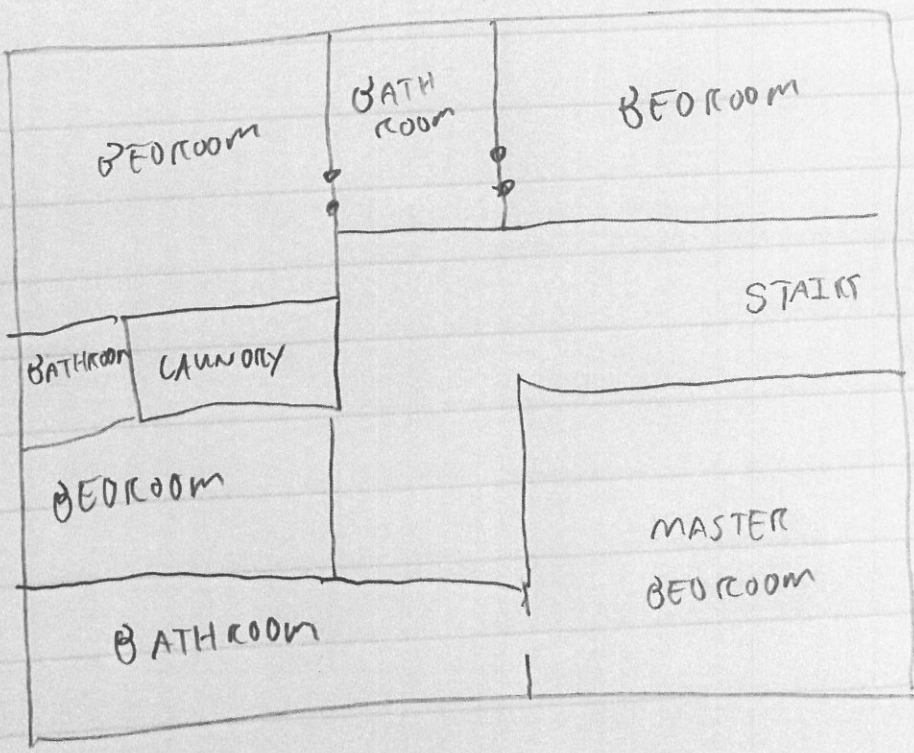 BATH
ROOM
BEDROOM
BEDROOM
STAIRS
BATHROOM
LAUNDRY
BEDROOM
MASTER
BEDROOM
BATHROOM